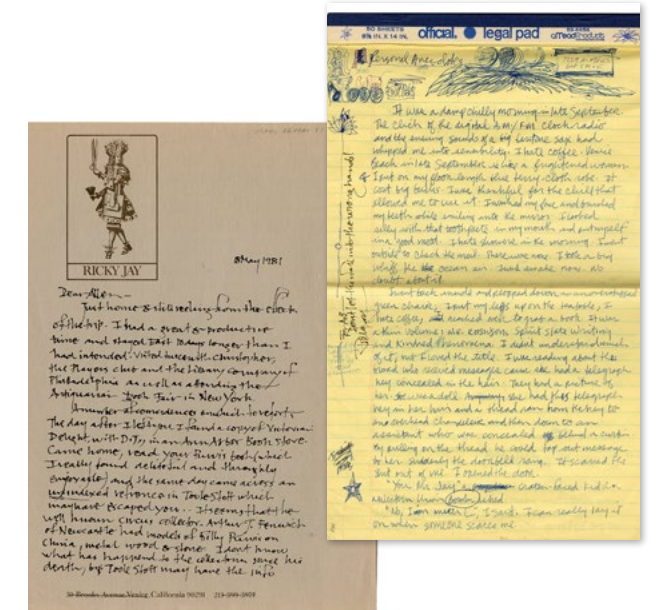 RICKY JAY
8 May 1981
Dear Allen –
Just home & still reeling from the effects
of the trip. I had a great & productive
time and stayed East 10 days longer than I
had intended. Visited with Christopher,
the Players club and the Library Company of
Philadelphia as well as attending the
Antiquarian Book Fair in New York.
A number of
The day after I left you I found a copy of Victorian
Delights, with DJ, in an Ann Arbor Book store.
Came home, read your book (which
I really found delightful and throughly
enjoyable) and the same day came across an
unindexed reference in Toole Stott which
may have escaped you... It seems that the
well known circus collector, Arthur J. Fenwick
of Newcastle had models of Billy Purvis on
china, metal wood & stone. I don't know
what has happend to the collection since his
death, but Toole Stott may have the info
Avenue Venice, California 90291
50 SHEETS
8½ IN. X 14 IN.
official. legal pad
Mead Products
Personal Anecdotes
It was a damp chilly morning in late September.
The click of the digital AM/FM clock radio
and the sounds of a big baritone sax had
whipped me into sensibility. I hate coffee. Venice
Beach in late September is like a frightened woman.
I put on my floor length blue terry-cloth robe. It
cost big bucks. I was thankful for the chill that
allowed me to use it. I washed my face and brushed
my teeth while smiling into the mirror. I looked
silly with that toothpaste in my mouth and put myself
in a good mood. I hate showers in the morning. I went
outside to check the mail. There was none. I took a big
whiff the ocean air. No
doubt about it.
I went back inside and plopped down in an overstuffed
green chair. I put my legs up on the table, I
hate coffee, and reached over to grab a book. It was
a thin volume; Mr. Robinson, Spirit Slate Writing
and Kindred Phenomena. I didn't understand much
of it, but I loved the title. I was reading about this
broad who received messages cause she had a telegraph
key concealed in the hair. They had a picture of
her. She was a doll. She had this telegraph
key in her hair and a thread ran from the key to
an overhead chandelier and then down to an
assistant who was concealed behind a curtain
By pulling on the thread he could tap out messages
to her. Suddenly the doorbell rang. It scared the
shit out of me. I opened the door.
"You Mr. Jay" a crater-faced kid
asked
"No, I'm", I said. I can really lay it
on when someone scares me.